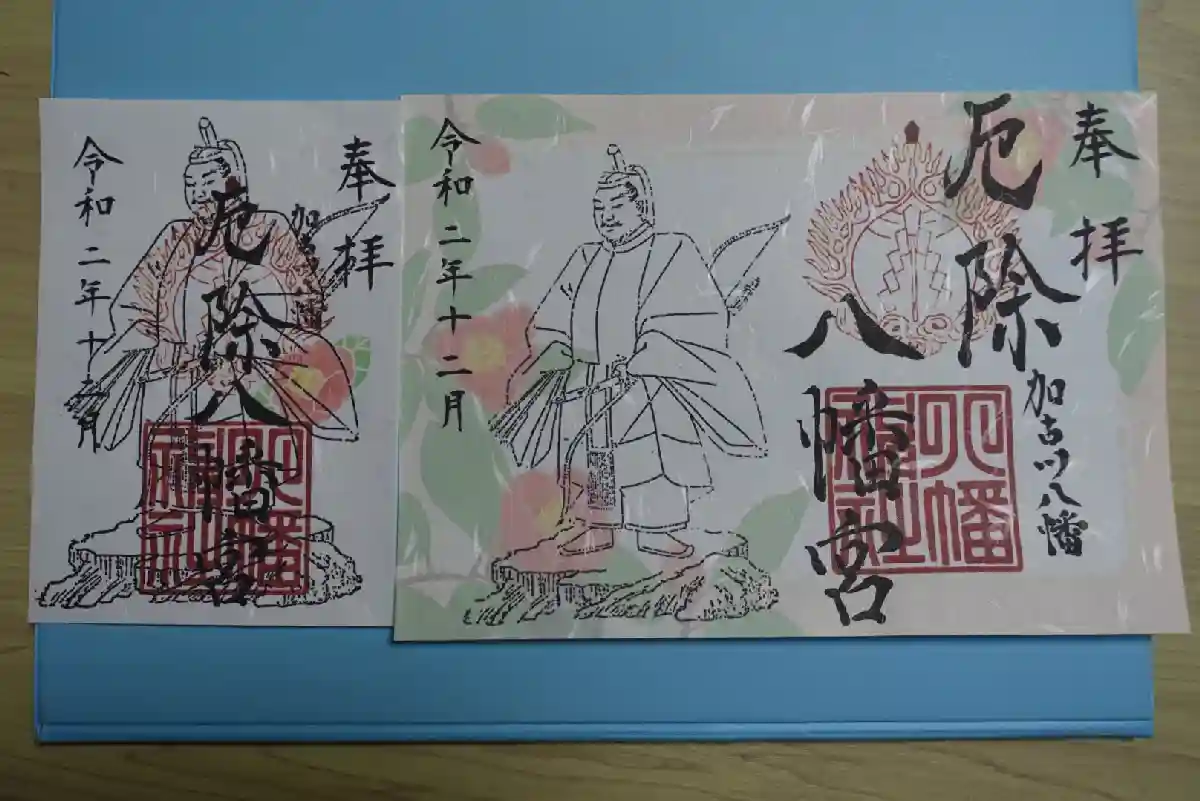 奉拝
加古川八幡
厄除
八幡宮
八幡
神社
令和二年十二月
奉拝
厄除八幡宮
八幡
神社
令和二年十二月